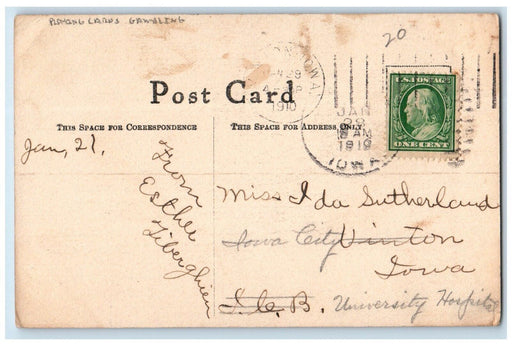 PLAYING CARDS GAMBLING
20
IOWA
1910
JAN
29
AM
1910
IOWA
U.S. POSTAGE
ONE CENT
Post Card
THIS SPACE FOR CORRESPONDENCE
THIS SPACE FOR ADDRESS ONLY.
Jan, 21.
From
Esther
Tiberghien
Miss Ida Sutherland
Iowa City Vinton
Iowa
I.C.B. University Hospital